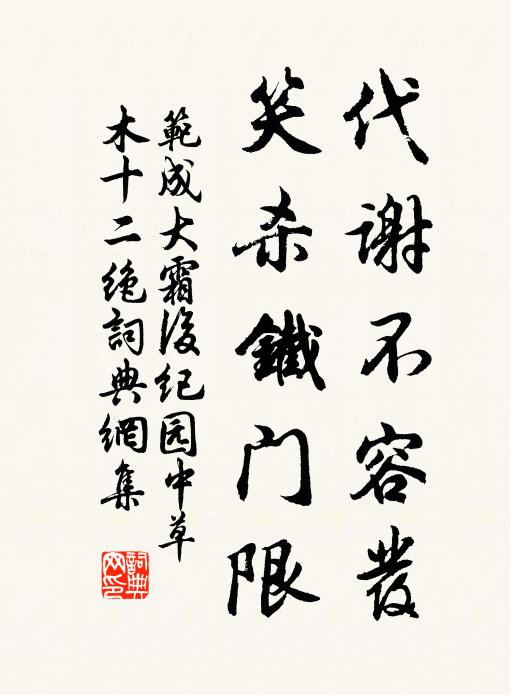 代謝不容發
笑杀鐵门限
範成大霜後紀园中草
木十二绝詞典網集
詞典
网印